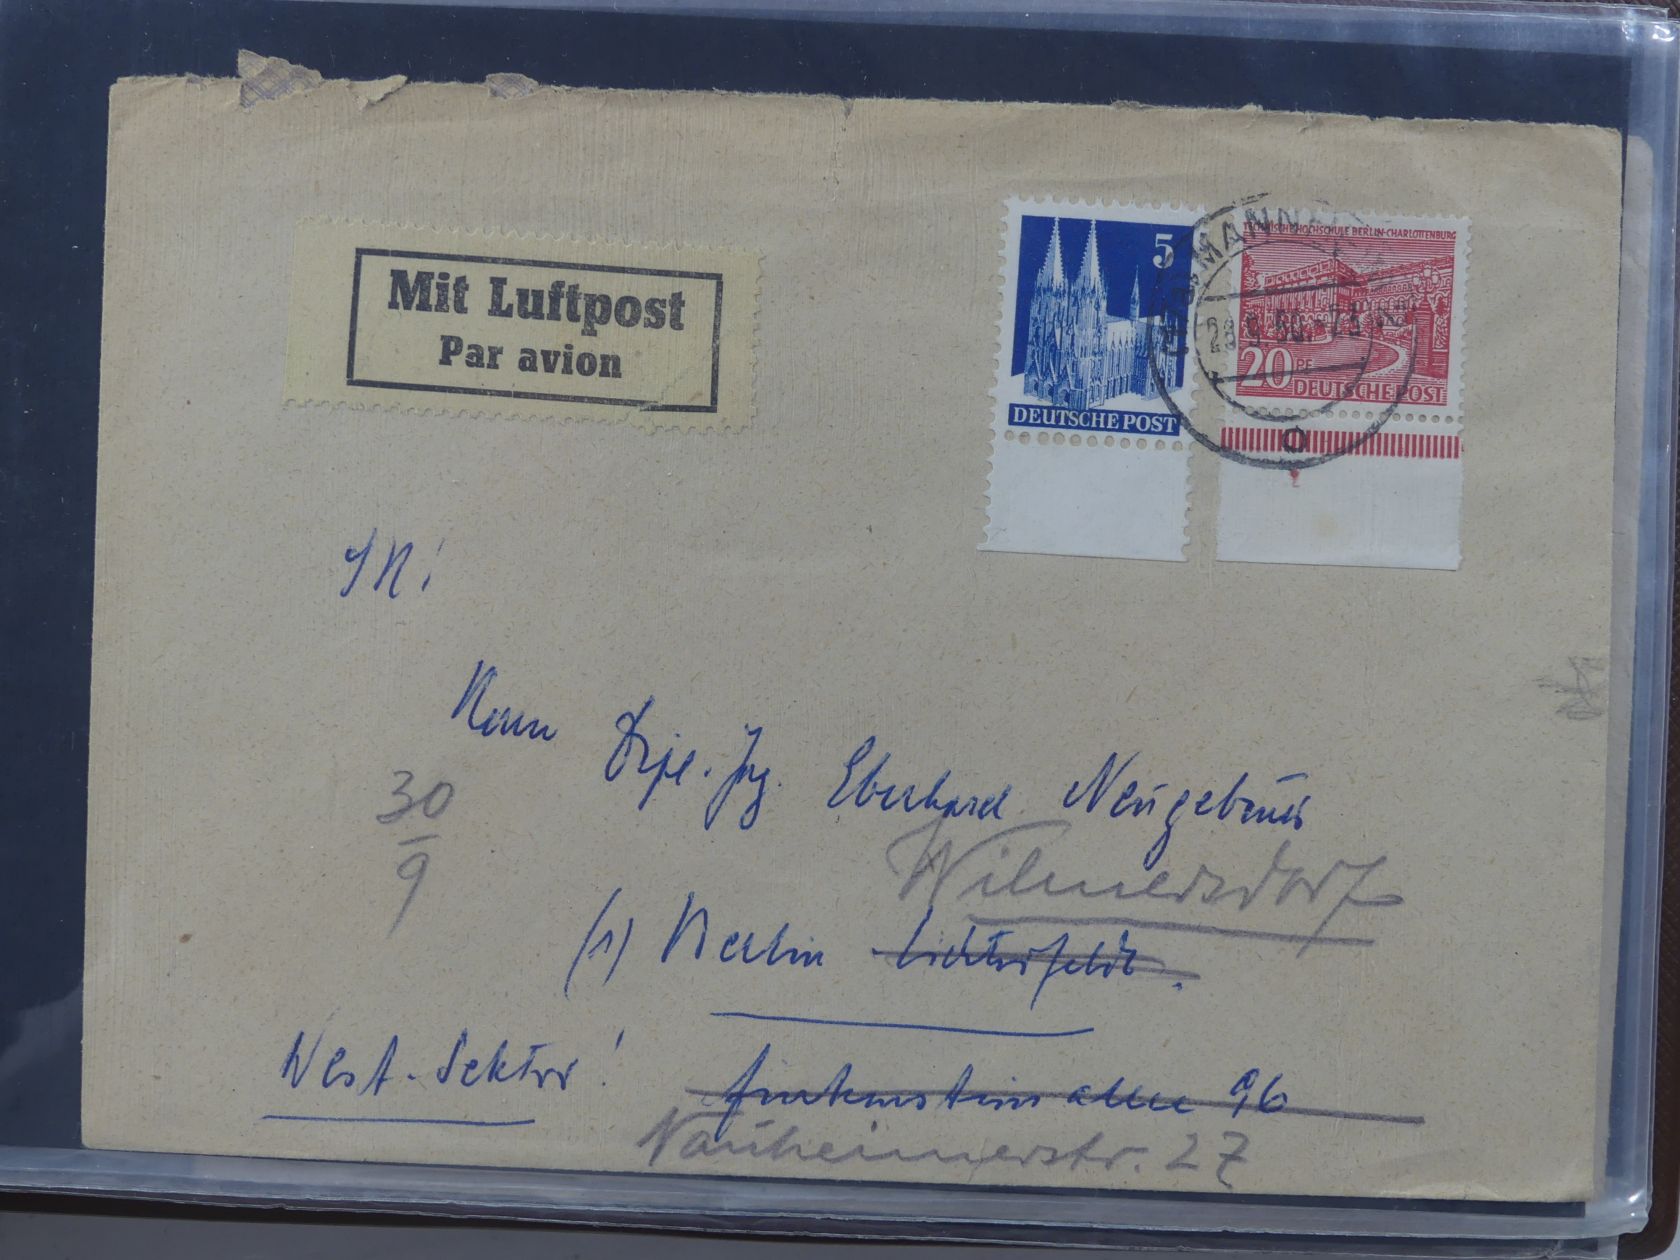 Mit Luftpost
Par avion
5
DEUTSCHE POST
TECHNISCHE HOCHSCHULE BERLIN-CHARLOTTENBURG
20 PF
DEUTSCHE POST
MANN
28.9.50.-23
An!
Herrn Dipl. Ing. Eberhard Neugebauer
30
9
Wilmersdorf
(1) Berlin Lichterfelde.
West-Sektor!
Finkensteinallee 96
Nauheimerstr. 27